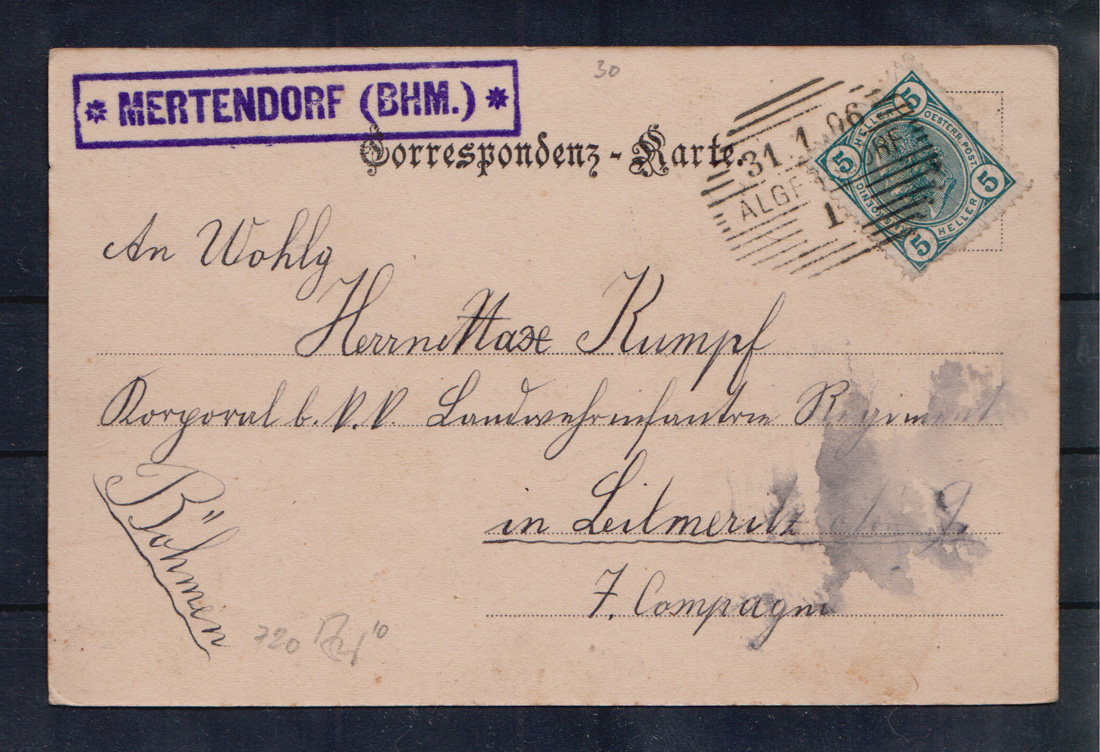 * MERTENDORF (BHM.) *
30
Correspondenz-Karte.
31 1 06
ALGE DORF
1
5 HELLER OESTERR. POST. 5 HELLER 5 5
An Wohlg
Herrn Max Kumpf
Korporal b. k.k. Landwehrinfantrie Regiment
in Leitmeritz No 9
7. Compagni
Böhmen
720